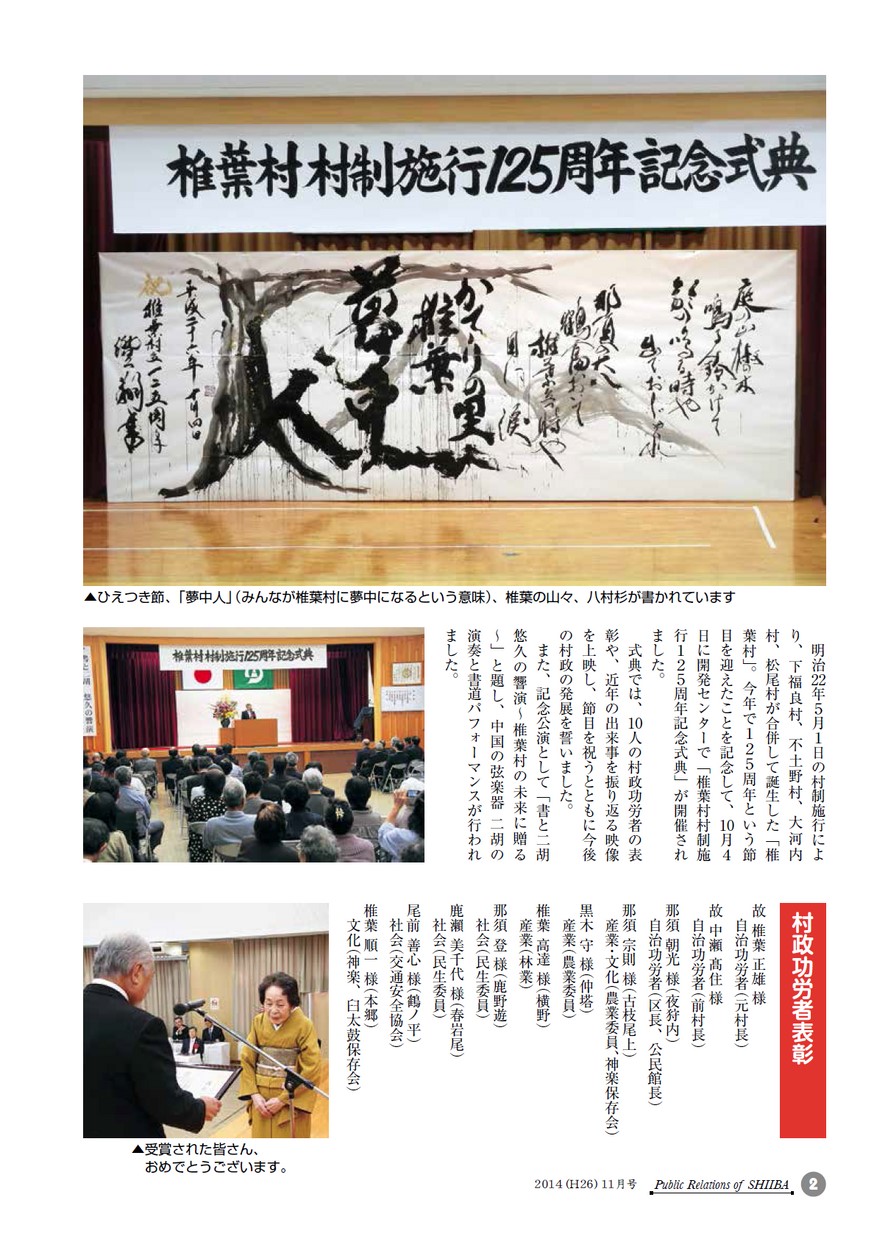 椎葉村村制施行125周年記念式典
庭の山椒木
鳴る鈴かけて
鈴の鳴る時や
出ておじゃれ
那須の大八
鶴富おいて
椎葉立つ時や
目に涙
かてーりの里
椎葉
夢中人
平成二十六年十月四日
祝
椎葉村立一二五周年
▲ひえつき節、「夢中人」(みんなが椎葉村に夢中になるという意味)、椎葉の山々、八村杉が書かれています
明治22年5月1日の村制施行によ
り、下福良村、不土野村、大河内
村、松尾村が合併して誕生した「椎
葉村」。今年で125周年という節
目を迎えたことを記念して、10月4
日に開発センターで「椎葉村村制施
行125周年記念式典」が開催され
ました。
式典では、10人の村政功労者の表
彰や、近年の出来事を振り返る映像
を上映し、節目を祝うとともに今後
の村政の発展を誓いました。
また、記念公演として「書と二胡
悠久の響演～椎葉村の未来に贈る
～」と題し、中国の弦楽器 二胡の
演奏と書道パフォーマンスが行われ
ました。
椎葉村村制施行125周年記念式典
書と二胡 悠久の響演
村政功労者表彰
故 椎葉 正雄 様
自治功労者(元村長)
故 中瀬 髙住 様
自治功労者(前村長)
那須 朝光 様(夜狩内)
自治功労者(区長、公民館長)
那須 宗則 様(古枝尾上)
産業・文化(農業委員、神楽保存会)
黒木 守 様(仲塔)
産業(農業委員)
椎葉 高達 様(横野)
産業(林業)
那須 登 様(鹿野遊)
社会(民生委員)
鹿瀬 美千代 様(春岩尾)
社会(民生委員)
尾前 善心 様(鶴ノ平)
社会(交通安全協会)
椎葉 順一 様(本郷)
文化(神楽、臼太鼓保存会)
▲受賞された皆さん、
おめでとうございます。
2014(H26)11月号 Public Relations of SHIIBA 2